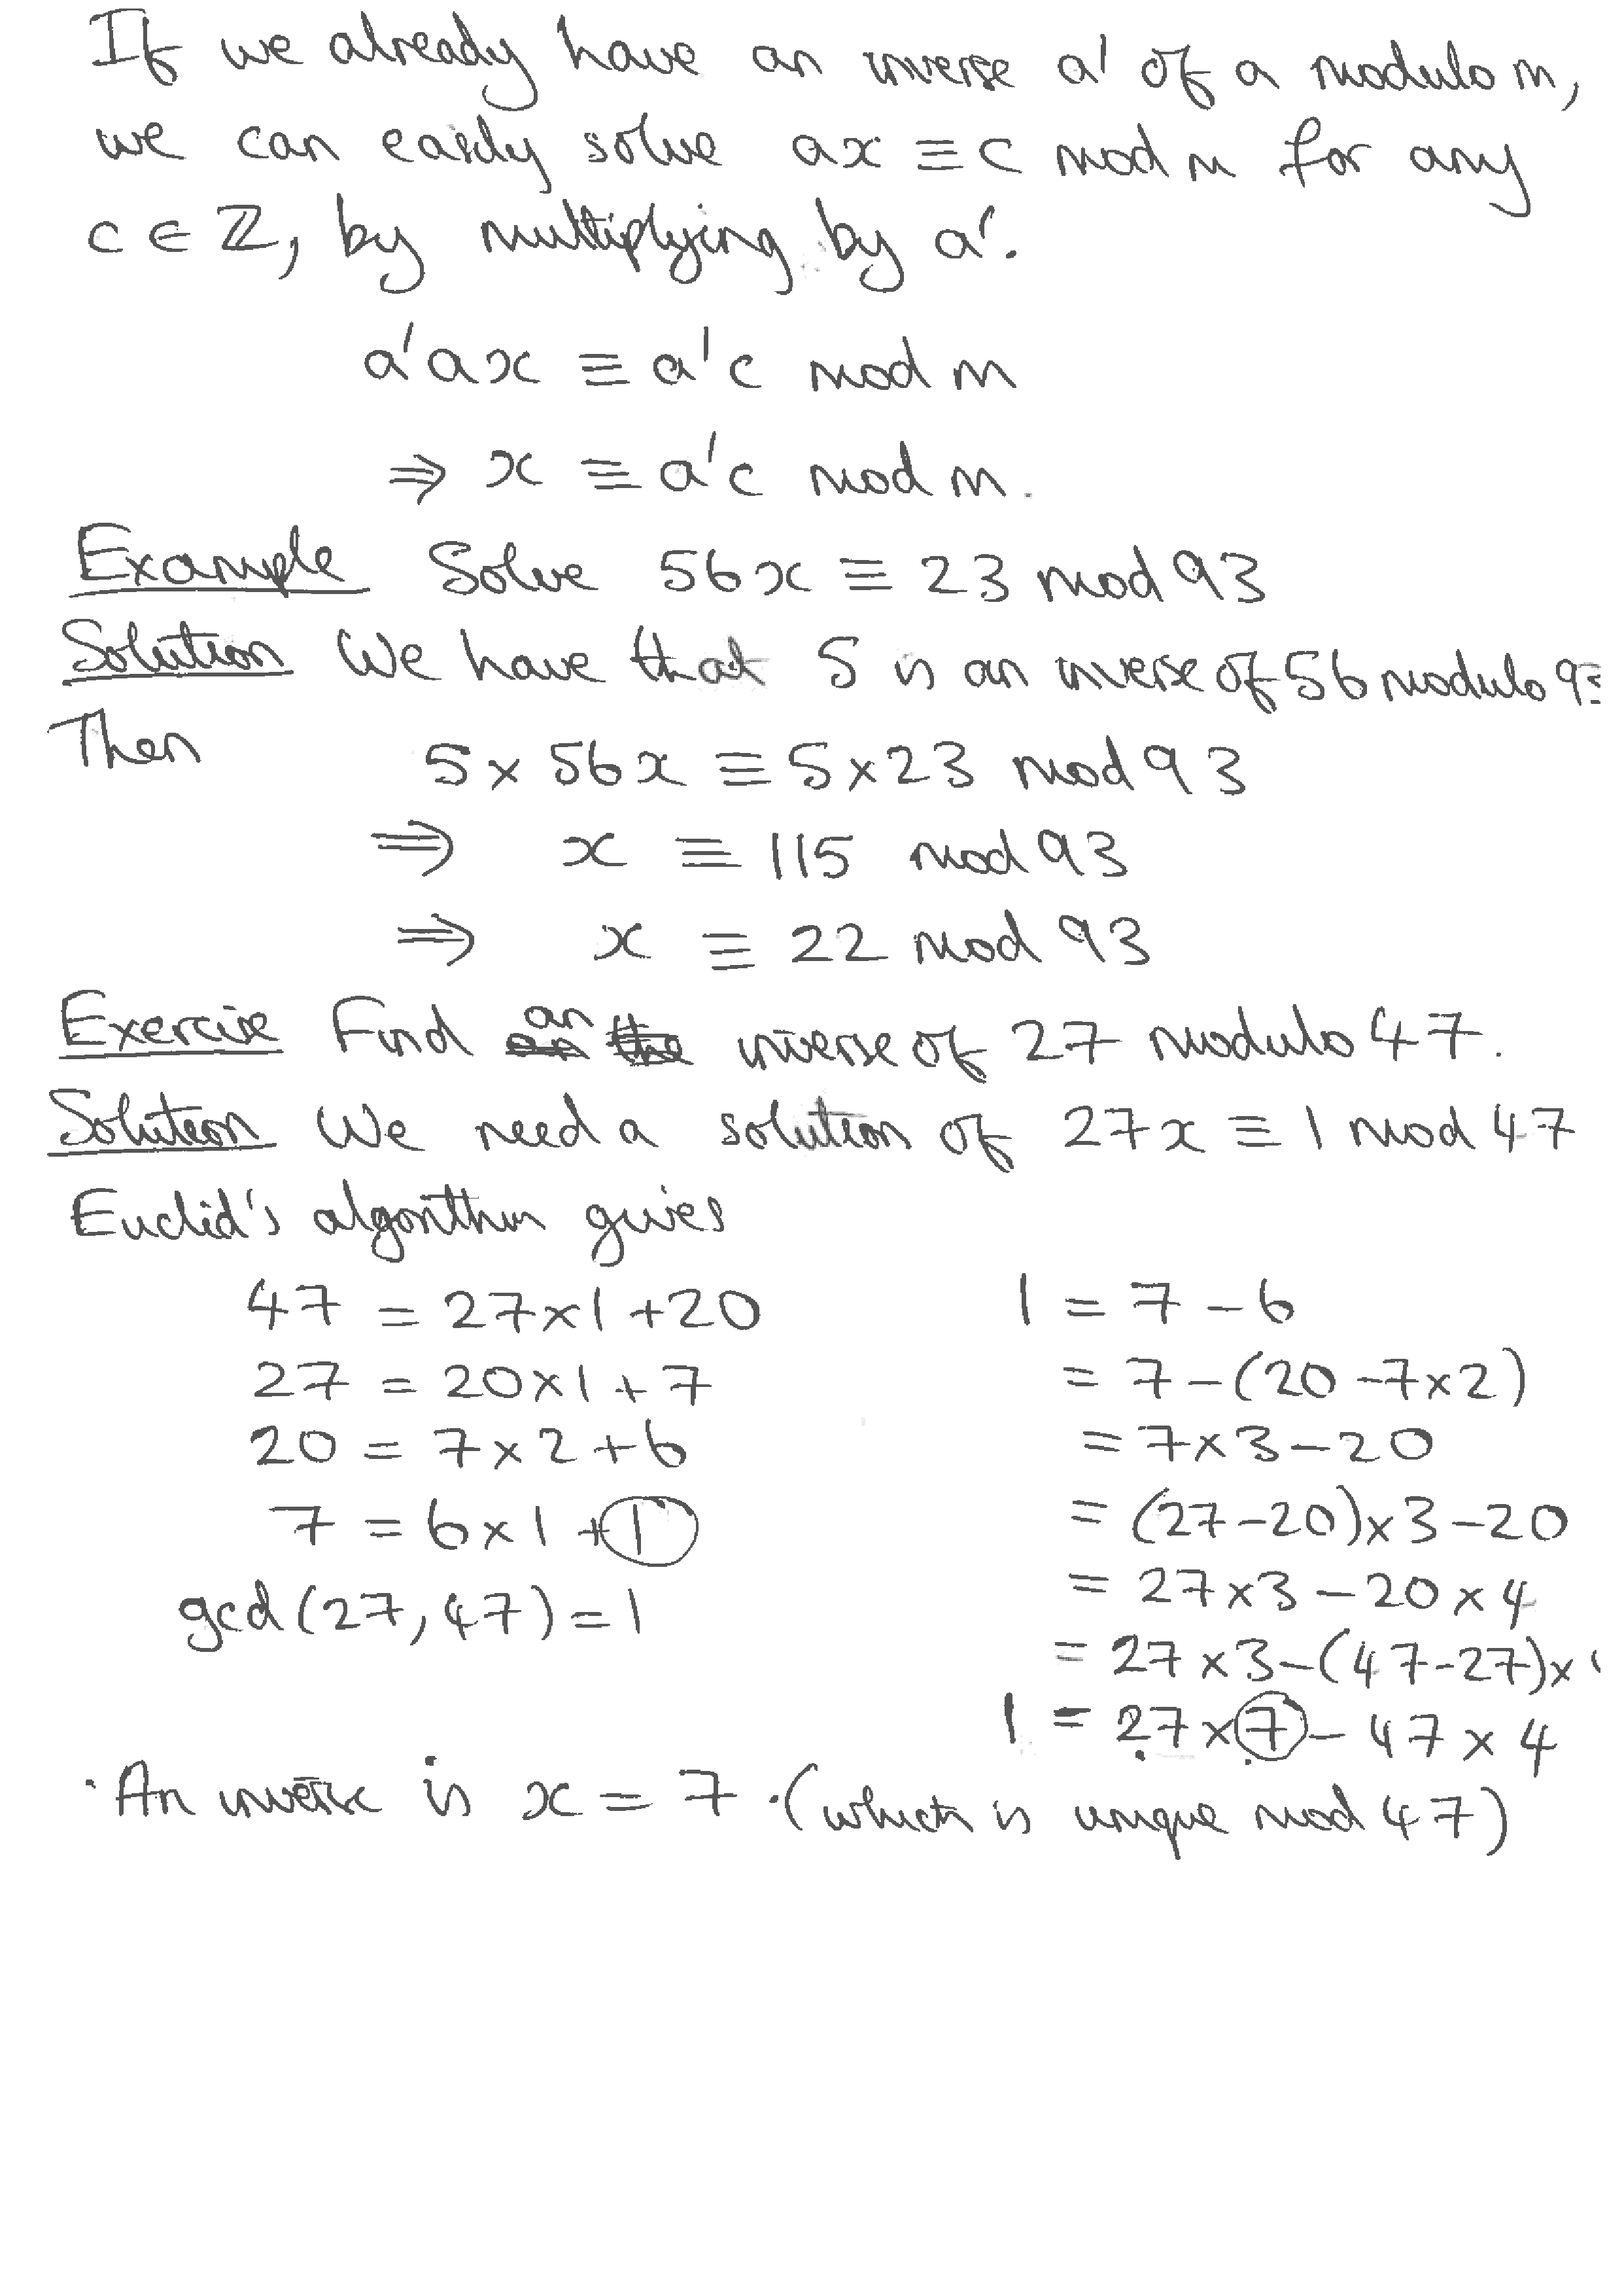 If we already have an inverse a' of a modulo m,
we can easily solve ax ≡ c mod m for any
c ∈ ℤ, by multiplying by a'.
a'ax ≡ a'c mod m
⇒ x ≡ a'c mod m.
Example Solve 56x ≡ 23 mod 93
Solution We have that 5 is an inverse of 56 modulo 93
Then 5 × 56x ≡ 5 × 23 mod 93
⇒ x ≡ 115 mod 93
⇒ x ≡ 22 mod 93
Exercise Find an inverse of 27 modulo 47.
Solution We need a solution of 27x ≡ 1 mod 47
Euclid's algorithm gives
47 = 27×1+20
27 = 20×1+7
20 = 7×2+6
7 = 6×1+1
gcd(27,47)=1
1 = 7-6
= 7-(20-7×2)
= 7×3-20
= (27-20)×3-20
= 27×3-20×4
= 27×3-(47-27)×
1 = 27×7-47×4
An inverse is x = 7. (which is unique mod 47)